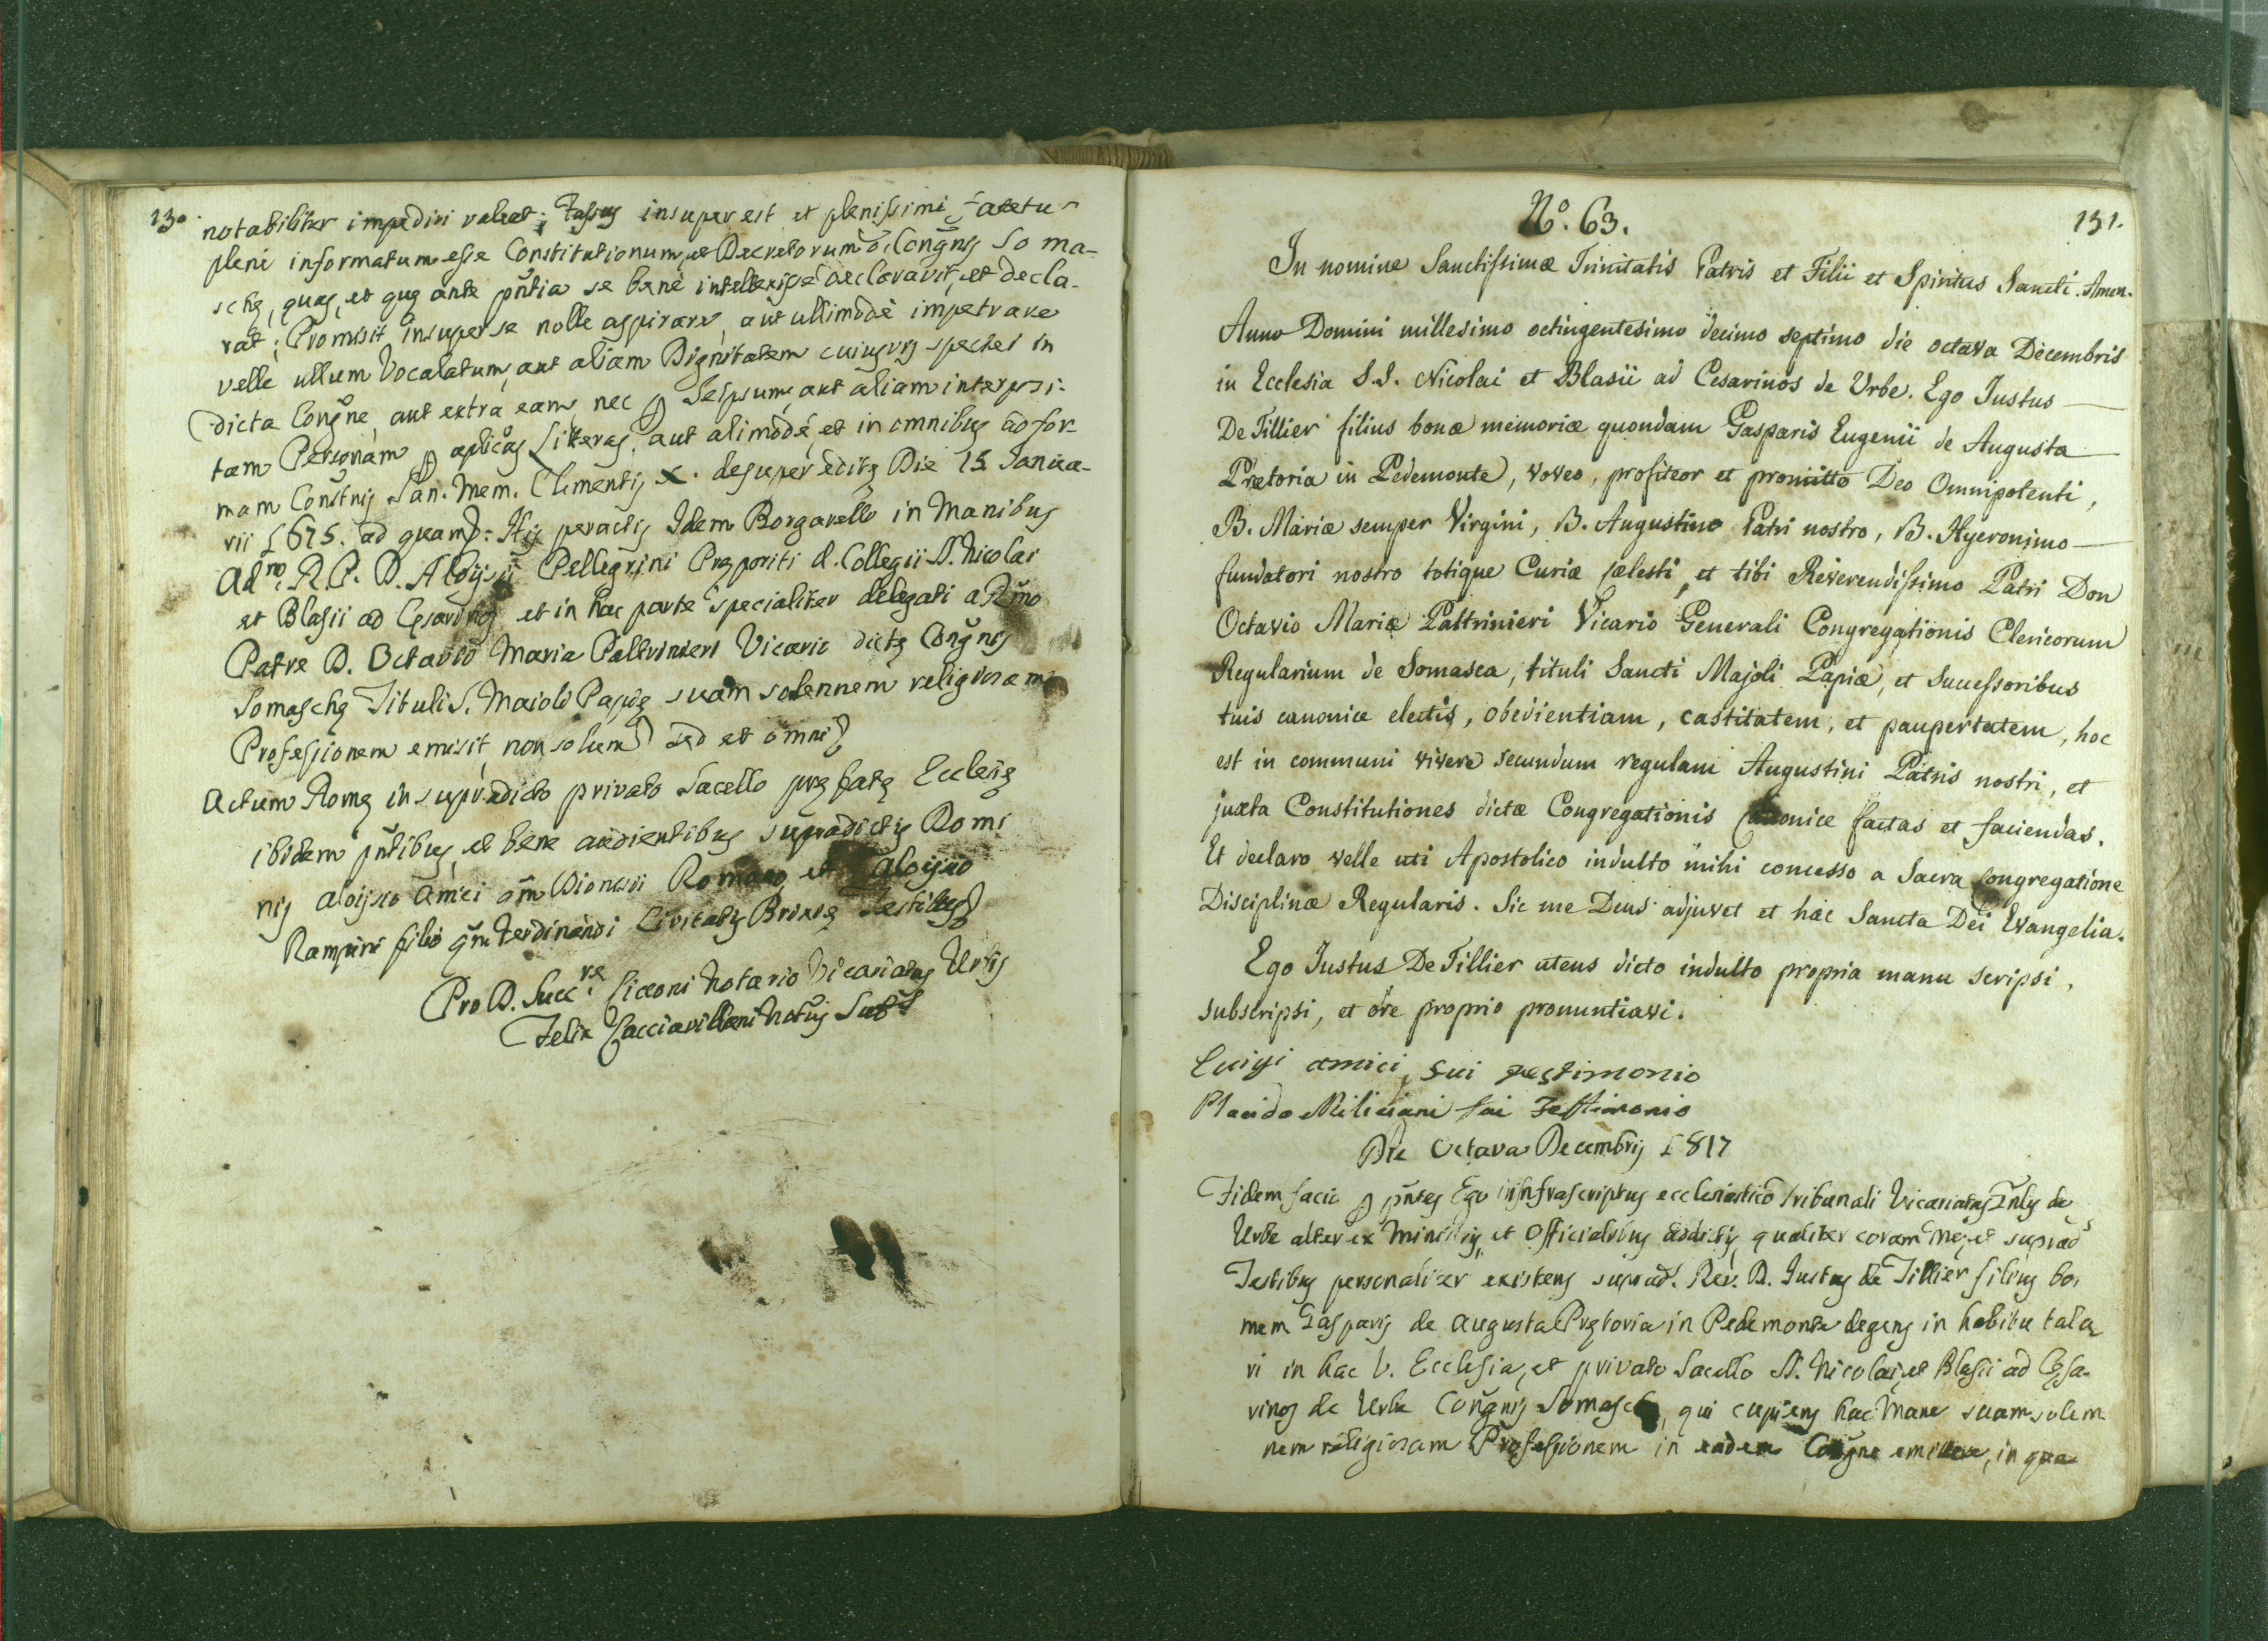 130.
notabiliter impediri valeat; Fassus insuper est et plenissimè fatetur
plenè informatum esse Constitutionum, et Decretorum d. Congñis Soma-
schę, quas, et quę ante pñtia se benè intellexisse declaravit, et decla-
rat; Promisit insuper se nolle aspirare, aut ullimodè impetrare
velle ullum Vocalatum, aut aliam Dignitatem cuiusvis speciei in
dicta Congñe, aut extra eam, nec p Seipsum, aut aliam interposi-
tam Personam p aplicas Litteras, aut alimodè, et in omnibus ad for-
mam Constnis San. Mem. Clementis X. desuper editę Die 15 Janua-
rii 1675. ad quam: His peractis Idem Borgarello in Manibus
Adm. R. P. D. Aloijsii Pellegrini Prępositi d. Collegii SS. Nicolai
et Blasii ad Cęsarinos et in hac parte specialiter delegati a Rm̃o
Patre D. Octavio Maria Paltrinieri Vicario dictę Congñis
Somaschę Tituli S. Maioli Papię suam solennem religiosam
Professionem emisit, non solum sed et omni
Actum Romę in supradicto privato Sacello pręfatę Ecclesię
ibidem pñtibus, et bene audientibus supradictis Domi
nis Aloijsio Amici qm̃ Dionisii Romano, et Aloijsio
Rampini filio qm̃ Ferdinandi Civitatis Brixię Testibus
Pro D. Succ.re Cicconi Notario Vicariatus Urbis
Felix Cacciavillani Notus Subs
N.º 63.
131.
In nomine Sanctissimæ Trinitatis Patris et Filii et Spiritus Sancti. Amen.
Anno Domini millesimo octingentesimo decimo septimo die octava Decembris
in Ecclesia S.S. Nicolai et Blasii ad Cesarinos de Urbe. Ego Justus
De Tillier filius bonæ memoriæ quondam Gasparis Eugenii de Augusta
Prætoria in Pedemonte, voveo, profiteor et promitto Deo Omnipotenti,
B. Mariæ semper Virgini, B. Augustino Patri nostro, B. Hyeronimo
fundatori nostro totique Curiæ cælesti, et tibi Reverendissimo Patri Don
Octavio Mariæ Paltrinieri Vicario Generali Congregationis Clericorum
Regularium de Somasca, tituli Sancti Majoli Papiæ, et successoribus
tuis canonice electis, obedientiam, castitatem, et paupertatem, hoc
est in communi vivere secundum regulam Augustini Patris nostri, et
juxta Constitutiones dictæ Congregationis Canonice factas et faciendas.
Et declaro velle uti Apostolico indulto mihi concesso a Sacra Congregatione
Disciplinæ Regularis. Sic me Deus adjuvet et hæc Sancta Dei Evangelia.
Ego Justus De Tillier utens dicto indulto propria manu scripsi,
subscripsi, et ore proprio pronuntiavi.
Luigi amici fui testimonio
Placido Miliciani fui Testimonio
Die Octava Decembris 1817
Fidem facio p pñtes Ego infrascriptus ecclesiastico Tribunali Vicariatus Gñlis de
Urbe alter ex Ministris, et Officialibus addictis, qualiter coram me, et suprad
Testibus personaliter existens suprad. Rev. D. Justus de Tillier filius bo.
mem Gasparis de Augusta Prętoria in Pedemonte degens in habitu tala
ri in hac V. Ecclesia, et privato Sacello SS. Nicolai, et Blasii ad Cęsa-
rinos de Urbe Congñis Somaschę, qui cupiens hac Mane suam solem
nem religiosam Professionem in eadem Congñe emittere, in qua